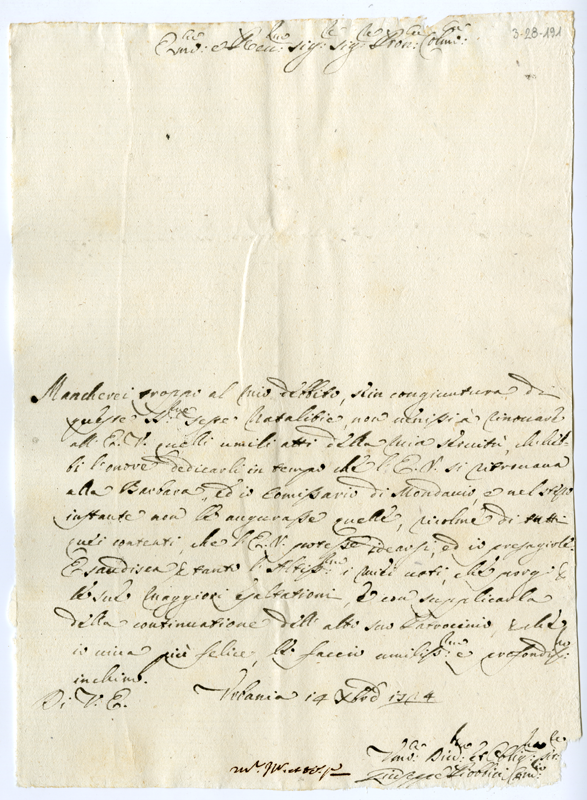 3-28-191
Em:mo e Rev:mo sig: sig: Pron: Colmo:
Mancherei troppo al mio debbito, se in congiuntura di
queste S:te feste Natalizie, non venissi a rinovare
all'E.V. quelli umili atti della mia servitù, ch'eb-
bi l'onore dedicarli in tempo che l'E.V. si ritrovava
alla Barbara, ed io Comissario di Mondavio e nel stesso
instante non le augurasse quelle, ricolme di tutti
quei contenti, che l'E.V. potesse idearsi, ed io presagirle.
Esaudisca tanto l'Altiss:mo i miei voti, che porgo
le sue maggiori esaltationi, e con supplicarla
della continuatione dell'alto suo Patrocinio, e che
io viva più felice, le faccio umiliss:mo e profondiss:mo
inchino.
Di V.E. Urbania 14 Xbre 1714
Um:mo Div:mo et Oblig:mo
Giuseppe